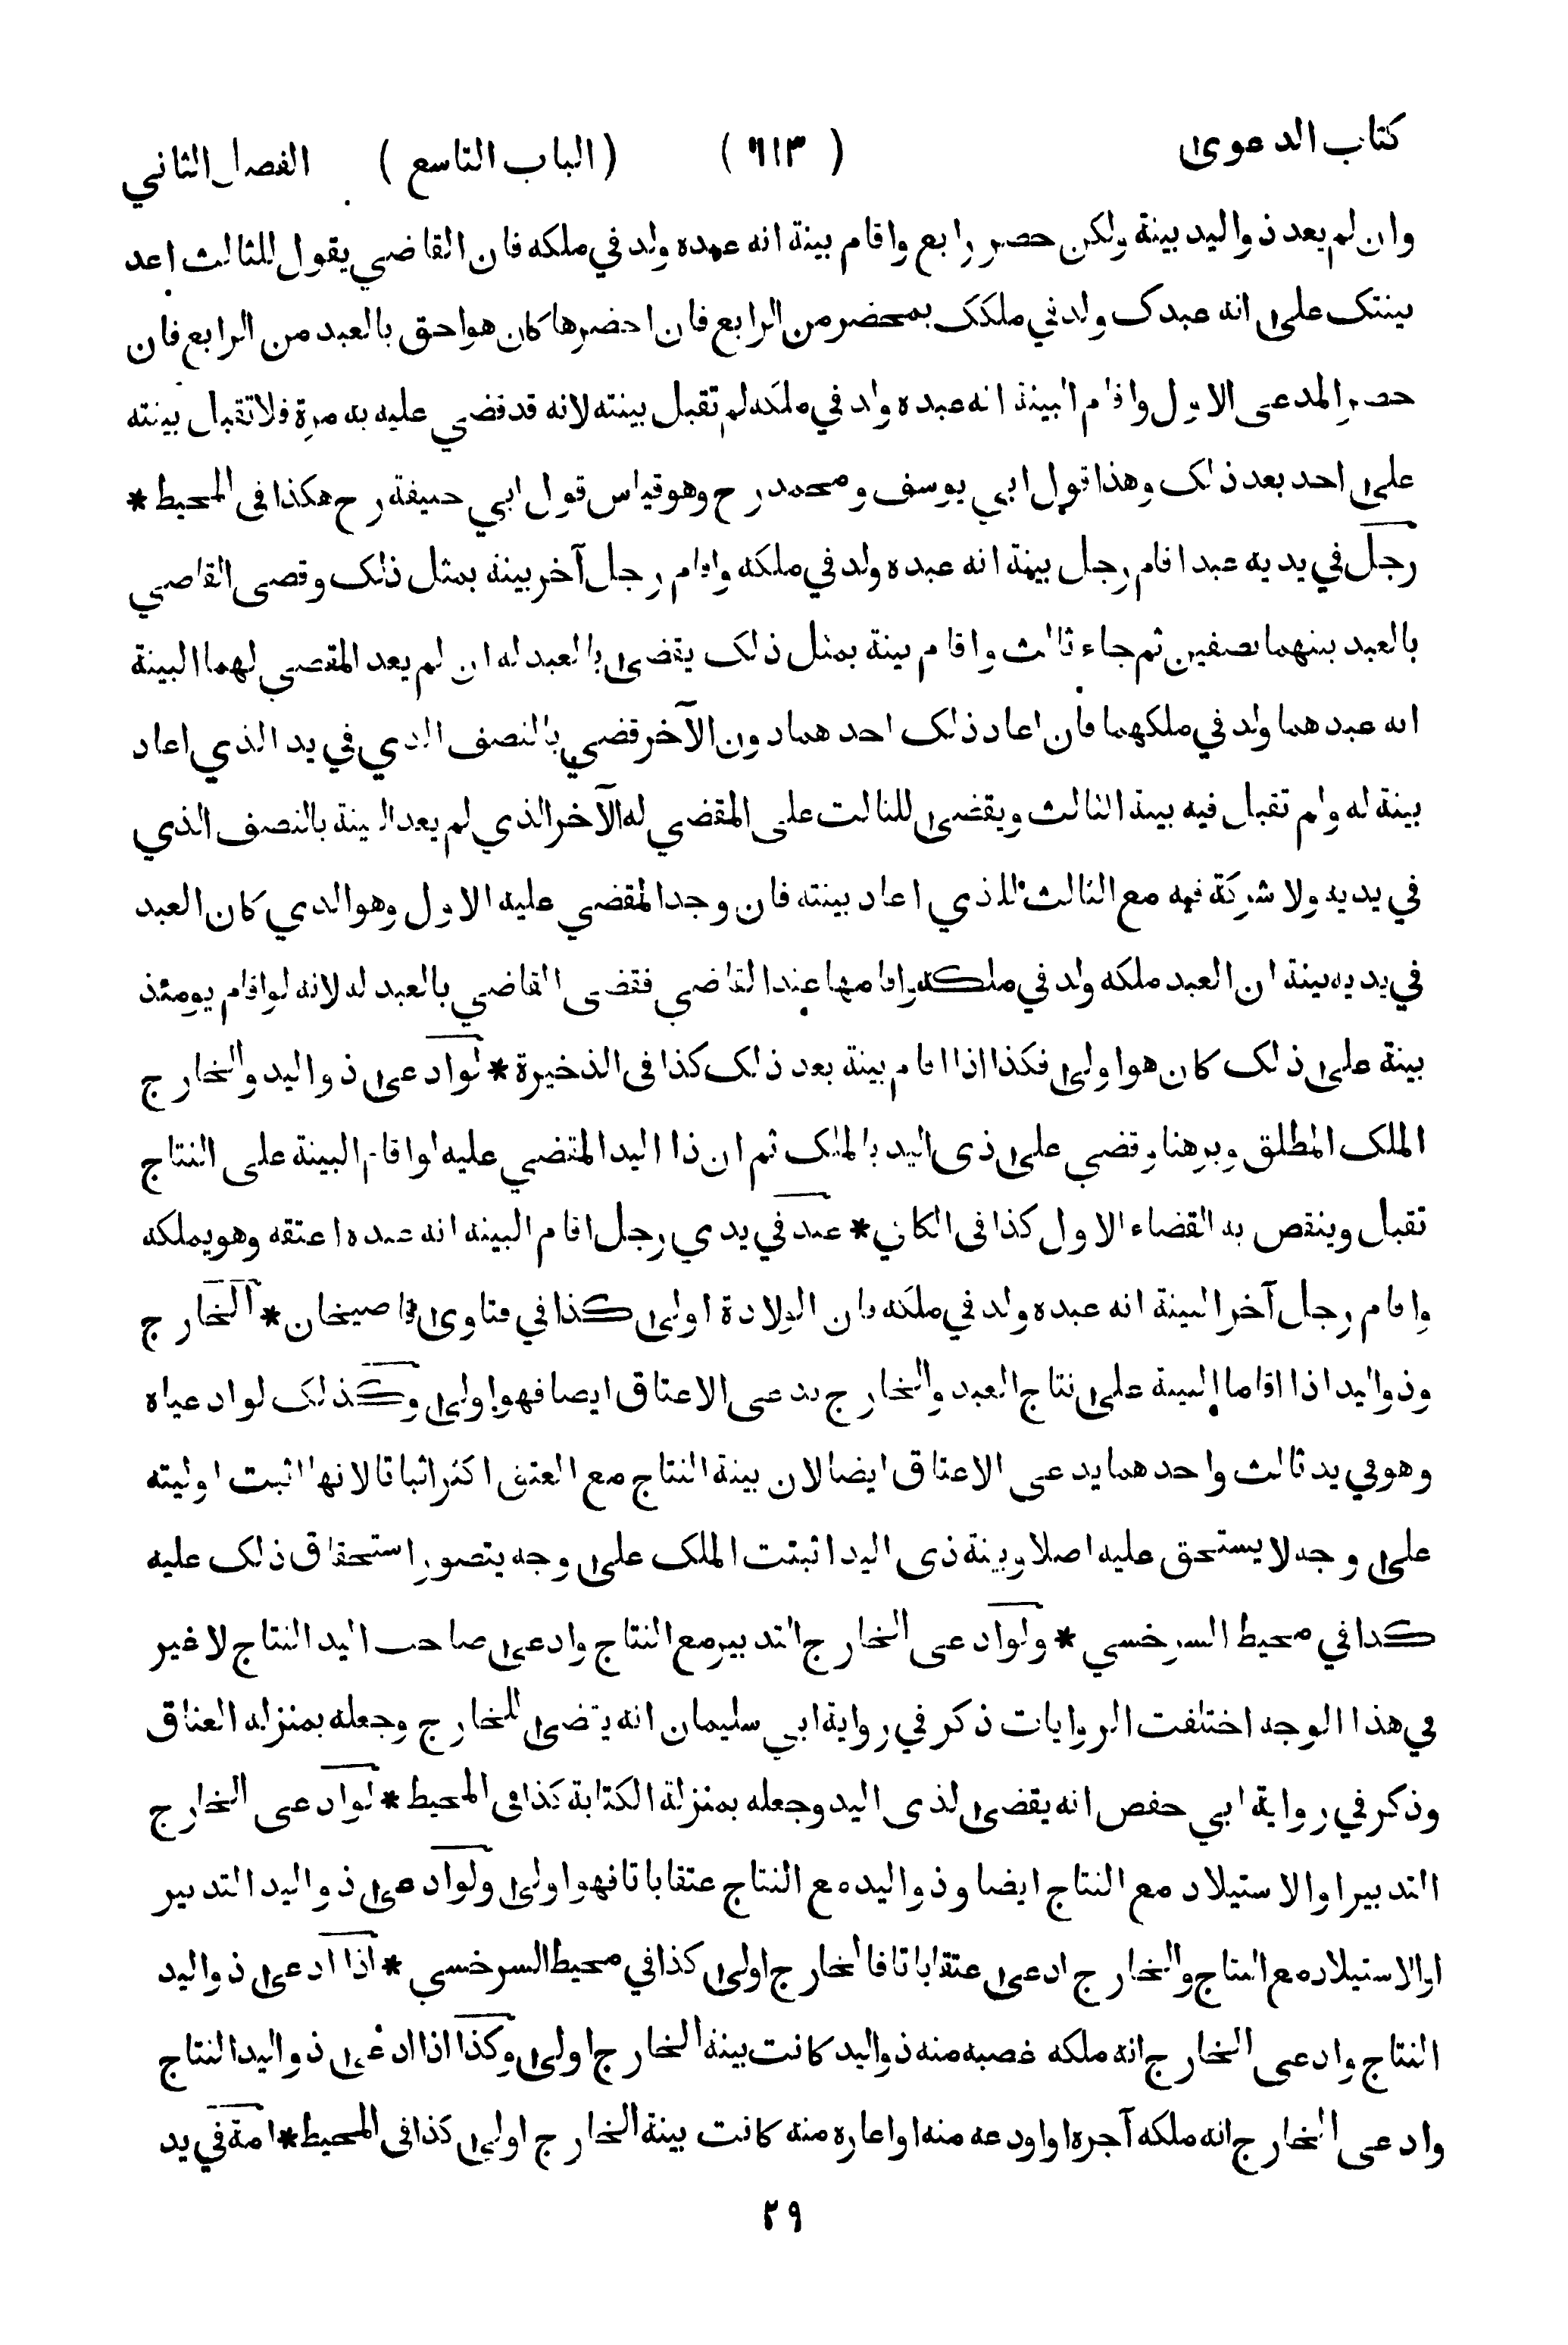 كتاب الدعوى (٦١٣) (الباب التاسع) الفصل الثاني
وان لم يعد ذو اليد بينة ولكن حضر رابع واقام بينة انه عبده ولد في ملكه فان القاضي يقول للثالث اعد
بينتك على انه عبدك ولد في ملكك بمحضر من الرابع فان احضرها كان هو احق بالعبد من الرابع فان
حضر المدعى الاول واقام البينة انه عبده ولد في ملكه لم تقبل بينته لانه قد قضي عليه به مرة فلا تقبل بينته
على احد بعد ذلك وهذا قول ابي يوسف ومحمد رح وهو قياس قول ابي حنيفة رح هكذا فى المحيط *
رجل في يديه عبد اقام رجل بينة انه عبده ولد في ملكه واقام رجل آخر بينة بمثل ذلك وقضى القاضي
بالعبد بينهما نصفين ثم جاء ثالث واقام بينة بمثل ذلك يقضى بالعبد له ان لم يعد المقضي لهما البينة
انه عبدهما ولد في ملكهما فان اعاد ذلك احدهما دون الآخر قضي بالنصف الذي في يد الذي اعاد
بينة له ولم تقبل فيه بينة الثالث ويقضى للثالث على المقضي له الآخر الذي لم يعد البينة بالنصف الذي
في يديه ولا شركة فيه مع الثالث للذي اعاد بينته فان وجد المقضي عليه الاول وهو الذي كان العبد
في يديه بينة ان العبد ملكه ولد في ملكه واقامها عند القاضي فقضى القاضي بالعبد له لانه لو اقام يومئذ
بينة على ذلك كان هو اولى فكذا اذا اقام بينة بعد ذلك كذا فى الذخيرة * لو ادعى ذو اليد والخارج
الملك المطلق وبرهنا وقضي على ذى اليد بالملك ثم ان ذا اليد المقضي عليه لو اقام البينة على النتاج
تقبل وينقض به القضاء الاول كذا فى الكافي * عبد في يدي رجل اقام البينة انه عبده اعتقه وهو يملكه
واقام رجل آخر البينة انه عبده ولد في ملكه فان الولادة اولى كذا في فتاوى قاضيخان * الخارج
وذو اليد اذا اقاما البينة على نتاج العبد والخارج يدعى الاعتاق ايضا فهو اولى وكذلك لو ادعياه
وهو في يد ثالث واحدهما يدعى الاعتاق ايضا لان بينة النتاج مع العتق اكثر اثباتا لانها اثبت اوليته
على وجه لا يستحق عليه اصلا وبينة ذى اليد اثبتت الملك على وجه يتصور استحقاق ذلك عليه
كذا في محيط السرخسي * ولو ادعى الخارج التدبير مع النتاج وادعى صاحب اليد النتاج لا غير
في هذا الوجه اختلفت الروايات ذكر في رواية ابي سليمان انه يقضى للخارج وجعله بمنزلة العتاق
وذكر في رواية ابي حفص انه يقضى لذى اليد وجعله بمنزلة الكتابة كذا فى المحيط * لو ادعى الخارج
التدبير او الاستيلاد مع النتاج ايضا وذو اليد مع النتاج عتقا باتا فهو اولى ولو ادعى ذو اليد التدبير
او الاستيلاد مع النتاج والخارج ادعى عتقا باتا فالخارج اولى كذا في محيط السرخسي * اذا ادعى ذو اليد
النتاج وادعى الخارج انه ملكه غصبه منه ذو اليد كانت بينة الخارج اولى وكذا اذا ادعى ذو اليد النتاج
وادعى الخارج انه ملكه آجره او اودعه منه او اعاره منه كانت بينة الخارج اولى كذا فى المحيط * امة في يد
٢٩